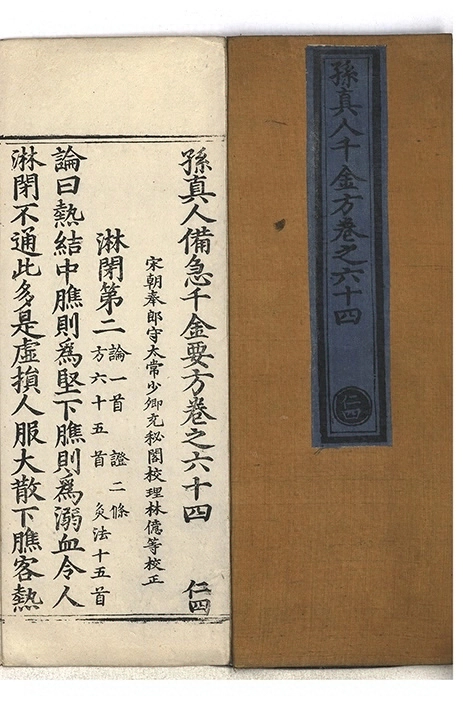 孫真人千金方卷之六十四
仁四
孫真人備急千金要方卷之六十四
仁四
宋朝奉郎守太常少卿充秘閣校理林億等校正
淋閉第二
論一首
證二條
方六十五首
灸法十五首
論曰熱結中膲則為堅下膲則為溺血令人
淋閉不通此多是虛損人服大散下膲客熱